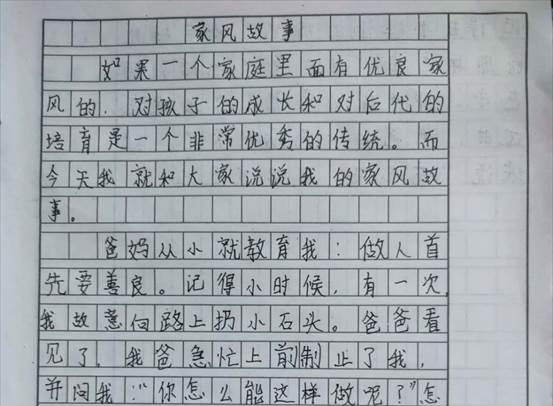 家风故事
如果一个家庭里面有优良家
风的，对孩子的成长和对后代的
培育是一个非常优秀的传统。而
今天我就和大家说说我的家风故
事。
爸妈从小就教育我：做人首
先要善良。记得小时候，有一次，
我故意向路上扔小石头。爸爸看
见了，我爸急忙上前制止了我，
并问我：“你怎么能这样做呢？”怎